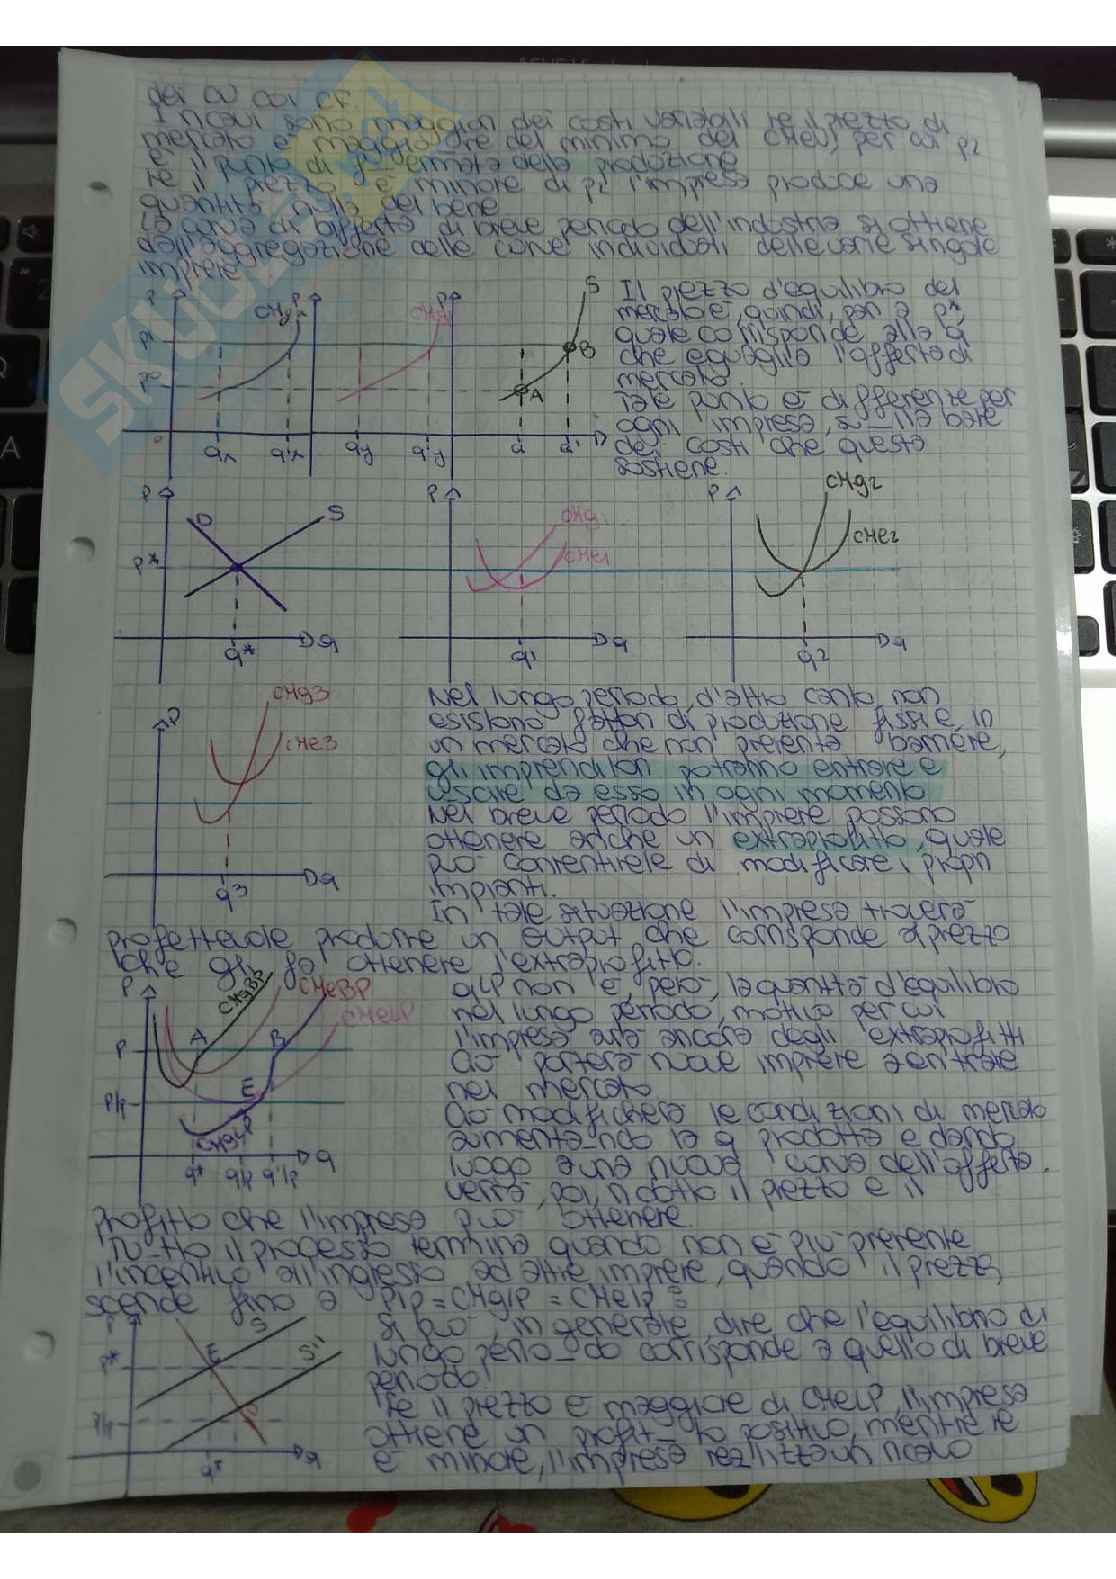 dei CV coi CF.
I ricavi sono maggiori dei costi variabili se il prezzo di
mercato è maggiore del minimo del CMeV, per cui p2
è il punto di fermata della produzione
Se il prezzo è minore di p2 l'impresa produce una
quantità nulla del bene
La curva di offerta di breve periodo dell'industria si ottiene
dall'aggregazione delle curve individuali delle varie singole
imprese
P P P S
CMgx CMgy
P' B
P° A
0 qx q'x qy q'y q q' Q
Il prezzo d'equilibrio del
mercato è, quindi, pari a p*,
quale corrisponde alla q
che eguaglia l'offerta di
mercato.
Tale punto è differente per
ogni impresa, sulla base
dei costi che questa
sostiene.
P D S P CMg1 CMe1 P CMg2 CMe2
P*
q* q q1 q q2 q
P CMg3
CMe3
q3 q
Nel lungo periodo, d'altro canto, non
esistono fattori di produzione fissi e, in
un mercato che non presenta barriere,
gli imprenditori potranno entrare e
uscire da esso in ogni momento
Nel breve periodo l'imprese possono
ottenere anche un extraprofitto, quale
può consentirele di modificare i propri
impianti.
In tale situazione l'impresa troverà
profettevole produrre un output che corrisponde al prezzo
che gli fa ottenere l'extraprofitto.
P CMgBP CMeBP CMeLP
P A B
Plp E
CMgLP
q* qlp q'lp q
qLP non è, però, la quantità d'equilibrio
nel lungo periodo, motivo per cui
l'impresa avrà ancora degli extraprofitti
Ciò porterà nuove imprese a entrare
nel mercato
Ciò modificherà le condizioni di mercato
aumentando la q prodotta e dando
luogo a una nuova curva dell'offerta.
Verrà, poi, ridotto il prezzo e il
profitto che l'impresa può ottenere.
Tutto il processo termina quando non è più presente
l'incentivo all'ingresso ad altre imprese, quando il prezzo
scende fino a Plp = CMglp = CMelp:
P S
P* E S'
Plp
q* q
Si può, in generale, dire che l'equilibrio di
lungo periodo corrisponde a quello di breve
periodo
Se il prezzo è maggiore di CMeLP, l'impresa
ottiene un profitto positivo, mentre se
è minore, l'impresa realizza un ricavo
SKUOLA